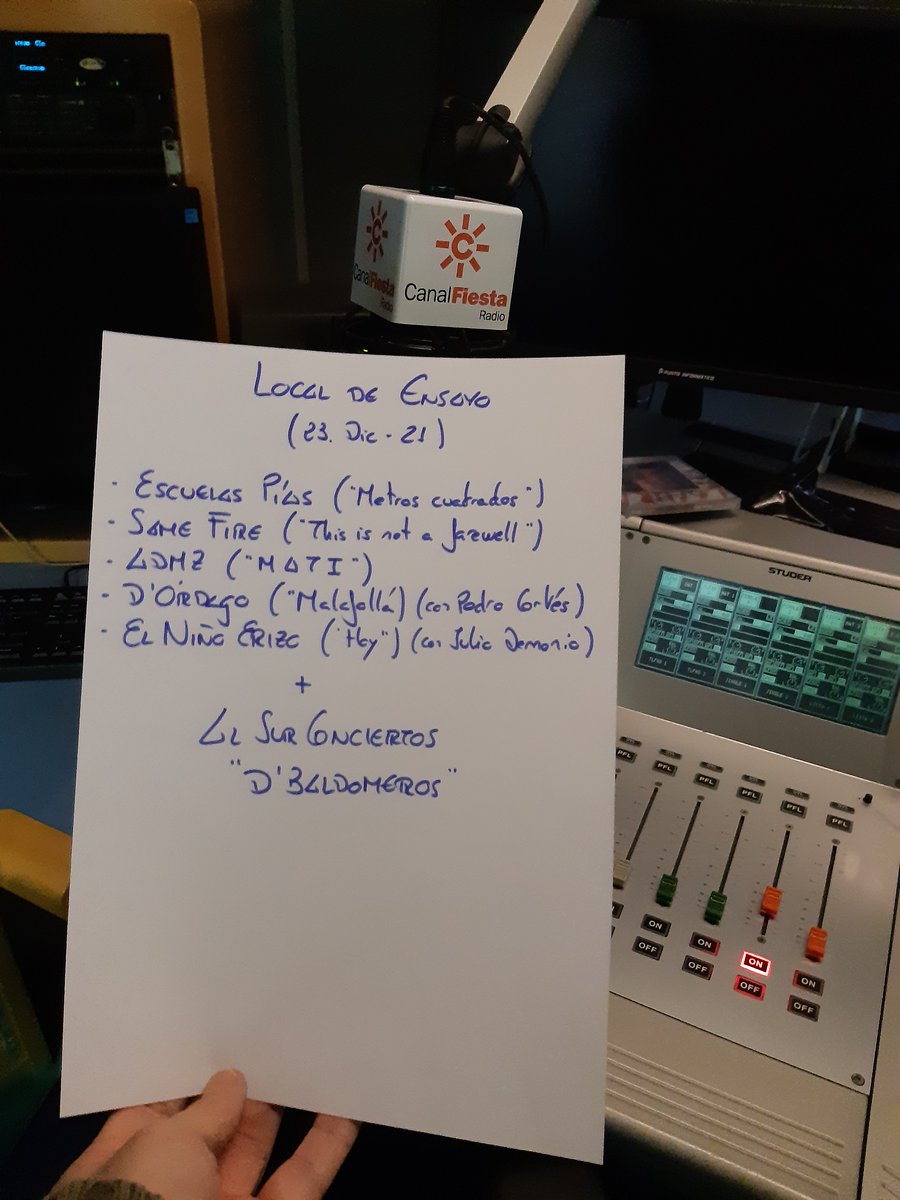 CanalFiesta
Radio
CanalFiesta
Radio
PUNTO INFORMATICO
LOCAL DE ENSAYO
(23. Dic - 21)
· ESCUELAS PÍAS ("Metros cuadrados")
· SAME FIRE ("This is not a farewell")
· ADMZ ("MATI")
· D'ÓRDAGO ("Malafollá) (con Pedro Cortés)
· EL NIÑO ERIZO ("Hoy") (con Julio Demonio)
+
AL SUR CONCIERTOS
"D'BALDOMEROS"
STUDER
PFL
PFL
PFL
PFL
PFL
PFL
ON
ON
ON
ON
OFF
OFF
OFF
OFF